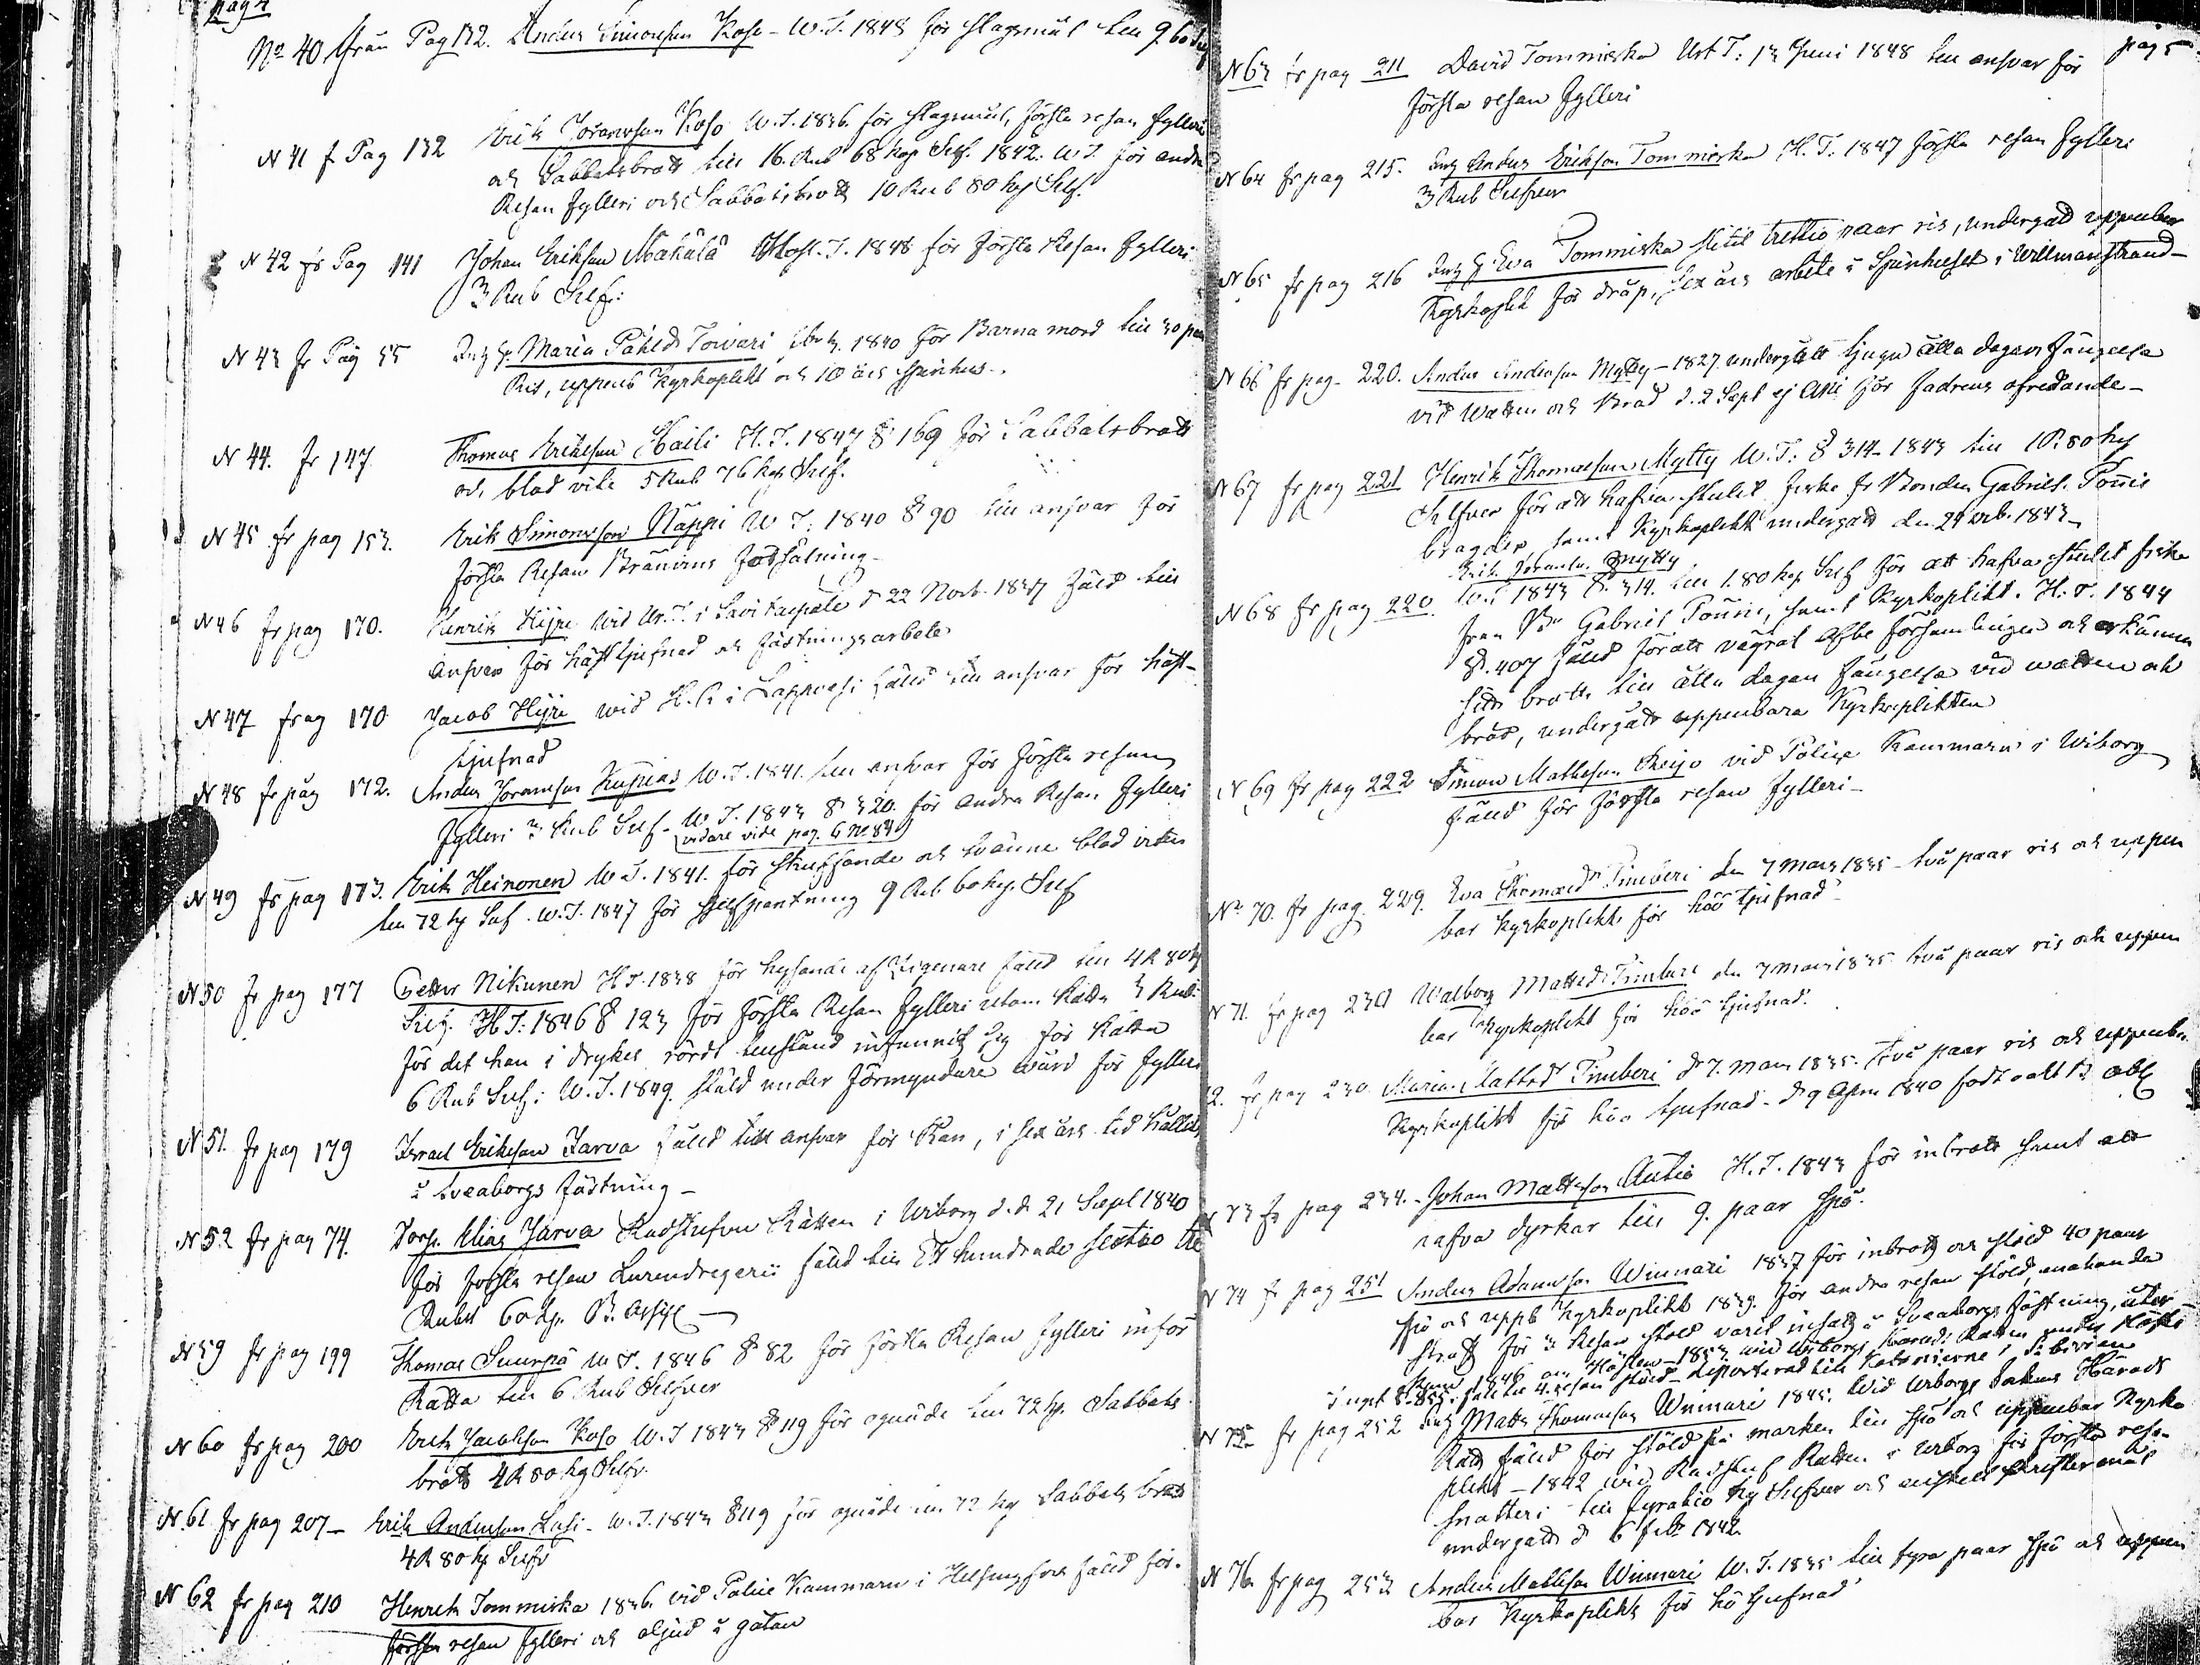 pag 4
No 40 från Pag 132. Anders Simonsson Koso - W.T. 1848 för slagsmål till 9. 60
N 41 f Pag 132 Erik Göransson Koso W.T. 1836 för slagsmål, första resan fylleri
och Sabbatsbrott till 16. Rub 68 kop Self. 1842. W.T. för andra
Resan fylleri och Sabbatsbrott 10 Rub 80 kop Self.
N 42 fr Pag 141 Johan Eriksson Mäkälä Höst. T. 1848 för första Resan fylleri
3 Rub Self:
N 43 fr Pag 55 Maria Påhlsd Toivari 1840 för Barnamord till 30 par
Ris, uppenb Kyrkoplikt och 10 års spinhus.
N 44. fr 147 Thomas Eriksson Haili H.T. 1847 § 169 för Sabbatsbrott
och blodvite 5 Rub 76 kop Self.
N 45 fr pag 153. Erik Simonsson Näppi W T: 1840 § 90 till ansvar för
första Resan Brännvins försälning
N 46 fr pag 170. Henrik Hijri vid Ur.T. i Savitaipale d 22 Novb. 1837 fäld till
ansvar för häst tjufnad och fästningsarbete
N 47 fr ag 170 Jacob Hijri wid H. R i Lappvesi fäld till ansvar för häst-
tjufnad
N 48 fr pag 172. Anders Göransson Kupias W.T. 1841. till ansvar för första resan
fylleri 3 Rub Self - W T. 1843 § 320. för andra Resan fylleri
vidare vide pag. 6 No 84
N 49 fr pag 173. Erik Heinonen W.T. 1841. för skuffande och tvänne blodviten
till 72 kp Self. W.T. 1847 för sjelfpantning 9 Rub. 60 kop. Self
N 50 fr pag 177 Petter Nikunen H T. 1838 för hysande af Zigenare fäld till 4 R 80 kp
Self. H T: 1846 § 123 för första Resan fylleri utom Rätta 3 Rub
för det han i dryckes rördt tillstånd infunnit sig för Rätta
6 Rub Self: W.T. 1849. stäld under förmyndare vård för fylleri
N 51. fr pag 179 Israel Eriksson Jarva fäld till ansvar för Rån, i sex års tid hållits
å Sveaborgs fästning -
N 52 fr pag 74. Torp. Elias Jarva Rådstufvu Rätten i Wiborg d. d. 21 Sept 1840
för första resan Lurendregeri fäld till Ett hundrade sextio tre
Rubel 60 kp. B. Ass
N 59 fr pag 199 Thomas Suurpä W T. 1846 § 82 för första Resan fylleri inför
Rätta till 6 Rub Silfver
N 60 fr pag 200 Erik Jacobsson Koso W.T 1843 § 119 för ogudl till 72 kp. Sabbats
brott 4 R 80 kop Silfv.
N 61 fr pag 207 - Erik Andersson Lasi - W.T. 1843 § 119 för till 72 kop Sabbats brott
4 R 80 kp Silfv
N 62 fr pag 210 Henrik Tommiska 1836 vid Police Kammarn i Helsingfors fäld för
första resan fylleri och oljud å gatan
pag 5
N 63 fr pag 211 David Tommiska Urt T: 13 Juni 1848 till ansvar för
första resan fylleri
N 64 fr pag 215. Anders Eriksson Tommiska H.T. 1847 första resan fylleri
3 Rub Silfver
N 65 fr pag 216 Eva Tommiska slitit trettio paar ris, undergad uppenbar
Kyrkoplikt för dråp, sex års arbete å Spinhuset i Willmanstrand -
N 66 fr pag. 220. Anders Andersson Mytty - 1827 undergått tjugu åtta dagars fängelse
vid Watten och Bröd d. 2 Sept för fadrens ofredande -
N 67 fr pag 221 Henrik Thomasson Mytty W.T: § 314 - 1843 till 1 R. 80 kop
Silfver för att hafva stulit fiske fr Bonden Gabriel Ponnis
bragder samt Kyrkoplikt undergad den 29 1843 -
N 68 fr pag 220. Erik Göranss. Mytty
W.T 1843 § 314. till 1.80 kop Self för att hafva stulit fiske
från Bn Gabriel Ponnis, samt Kyrkoplikt. H. T. 1844
§. 407 fäld för att vägrat afbe församlingen och erkänna
sitt brott till åtta dagars fängelse vid watten och
bröd, undergått uppenbara Kyrkoplikten
N 69 fr pag 222 Simon Mathsson Reijo vid Police Kammarn i Wiborg
fäld för första resan fylleri -
No 70. fr pag. 229. Eva Thomasdr Timberi den 7 Mars 1835 - två paar ris och uppen
bar kyrkoplikt för hö tjufnad
N 71. fr pag 230 Walborg Mattsd Timberi den 7 Mars 1835 två paar ris och uppen
bar Kyrkoplikt för hö tjufnad.
2. fr pag 230 Maria Mattsd Timberi d 7. Mars 1835. två paar ris och uppenba
Kyrkoplikt för hö tjufnad - d 9 April 1840 födt oäkt B
N 73 fr pag 234. - Johan Mattsson Autio H.T. 1843 för inbrott samt att
hafva dyrkar till 9. paar spö.
N 74 fr pag 251 Anders Adamsson Winnari 1837 för inbrott och stöld 40 paar
spö och uppb Kyrkoplikt 1839. för andra resan stöld, enahanda
straff för 3 Resan stöld varit insatt å Sveaborgs fästning, åter
1846 om Hösten - 1853 wid Wiborgs Härads Ratten under Hösten
fäld till 4. resan stöld - deporterad till Kolonierne i Sibirien
N 75 fr pag 252 Matts Thomasson Winnari 1845. Wid Wiborgs Sokns Härads
Rätt fäld för stöld på marken till spö och uppenbar Kyrko
plikt - 1842 wid Rådstuf Rätten i Wiborg för första resan
snatteri till fyratio kp Silfver och enskilt skriftermål
undergått d 6 feb 1842
N 76 fr pag 253 Anders Mattsson Winnari W.T. 1835 till fyra paar spö och uppen
bar Kyrkoplikt för hö tjufnad